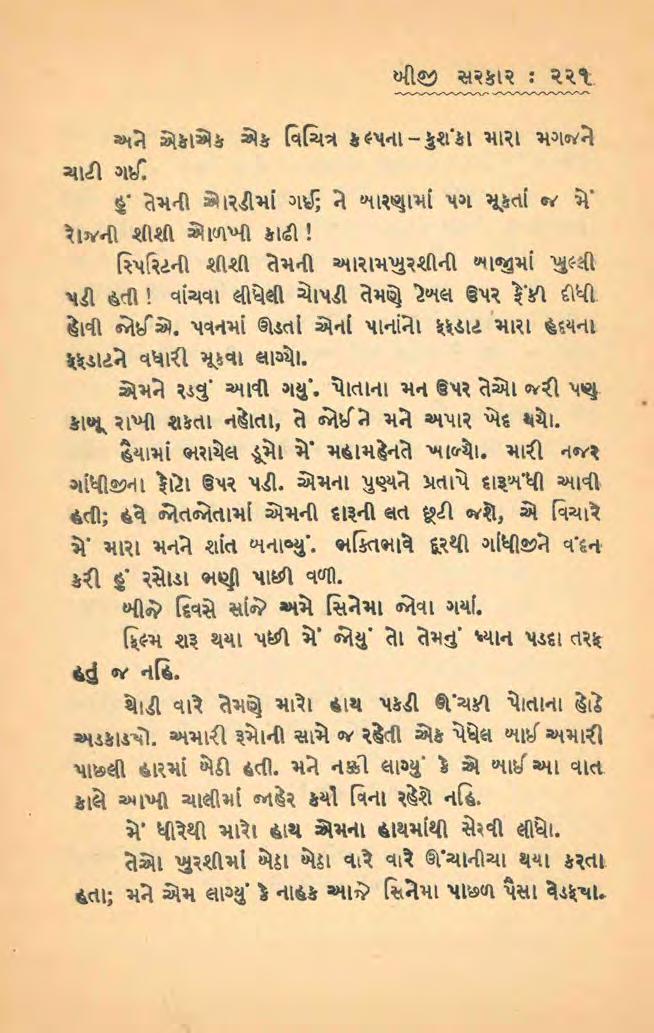 બીજી સરકાર : ૨૨૧
અને એકાએક એક વિચિત્ર કલ્પના – કુશંકા મારા મગજને
ચાટી ગઈ.
હું તેમની ઓરડીમાં ગઈ; ને બારણામાં પગ મૂકતાં જ મેં
રોજની શીશી ઓળખી કાઢી !
સ્પિરિટની શીશી તેમની આરામખુરશીની બાજુમાં ખુલ્લી
પડી હતી ! વાંચવા લીધેલી ચોપડી તેમણે ટેબલ ઉપર ફેંકી દીધી
હોવી જોઈએ. પવનમાં ઊડતાં એનાં પાનાંનો ફફડાટ મારા હૃદયના
ફફડાટને વધારી મૂકવા લાગ્યો.
એમને રડવું આવી ગયું. પોતાના મન ઉપર તેઓ જરી પણ
કાબૂ રાખી શકતા નહોતા, તે જોઈને મને અપાર ખેદ થયો.
હૈયામાં ભરાયેલ ડૂમો મેં મહામહેનતે ખાળ્યો. મારી નજર
ગાંધીજીના ફોટા ઉપર પડી. એમના પુણ્યને પ્રતાપે દારૂબંધી આવી
હતી; હવે જોતજોતામાં એમની દારૂની લત છૂટી જશે, એ વિચારે
મેં મારા મનને શાંત બનાવ્યું. ભક્તિભાવે દૂરથી ગાંધીજીને વંદન
કરી હું રસોડા ભણી પાછી વળી.
બીજે દિવસે સાંજે અમે સિનેમા જોવા ગયાં.
ફિલ્મ શરૂ થયા પછી મેં જોયું તો તેમનું ધ્યાન પડદા તરફ
હતું જ નહિ.
થોડી વારે તેમણે મારો હાથ પકડી ઊંચકી પોતાના હોઠે
અડકાડ્યો. અમારી રૂમોની સામે જ રહેતી એક પેધેલ બાઈ અમારી
પાછલી હારમાં બેઠી હતી. મને નક્કી લાગ્યું કે એ બાઈ આ વાત
કાલે આખી ચાલીમાં જાહેર કર્યા વિના રહેશે નહિ.
મેં ધીરેથી મારો હાથ એમના હાથમાંથી સેરવી લીધો.
તેઓ ખુરશીમાં બેઠા બેઠા વારે વારે ઊંચાનીચા થયા કરતા
હતા; મને એમ લાગ્યું કે નાહક આજે સિનેમા પાછળ પૈસા વેડફ્યા.